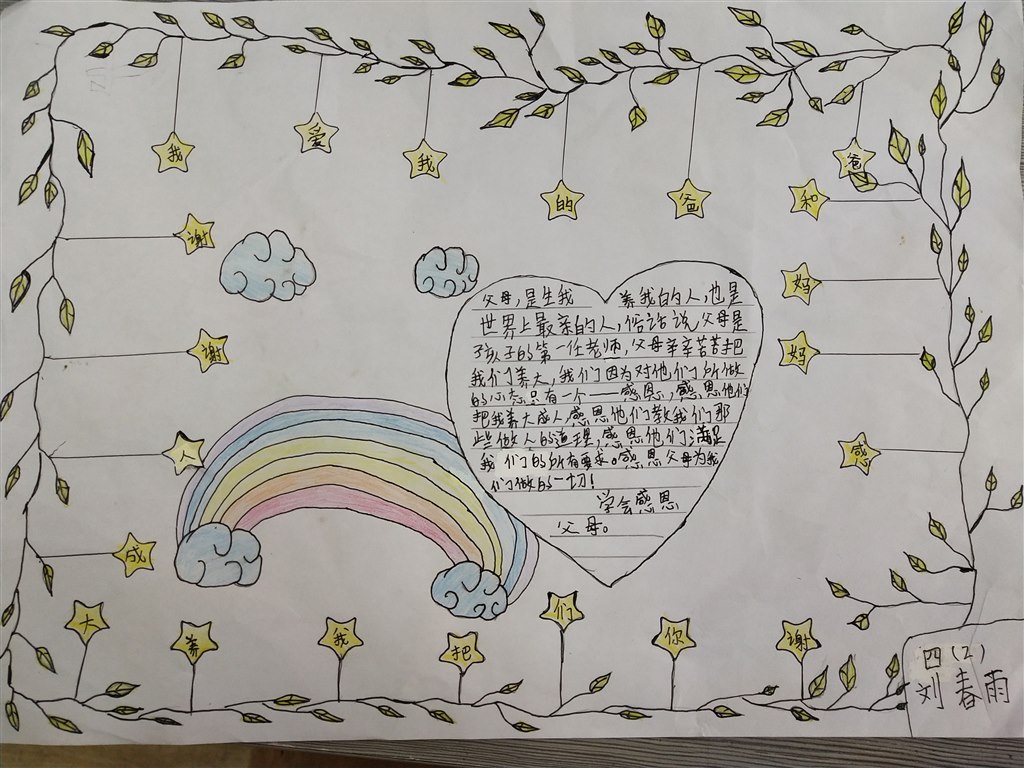 我爱我的爸爸
和妈妈感
谢你们把我养大
成人谢谢
父母,是生我 养我的人,也是
世界上最亲的人,俗话说,父母是
孩子的第一任老师,父母辛辛苦苦把
我们养大,我们因为对他们所做
的心态只有一个——感恩,感恩他们
把我养大成人,感恩他们教我们那
些做人的道理,感恩他们满足
我们的所有要求。感恩父母为我
们做的一切!
学会感恩
父母。
四(2)
刘春雨